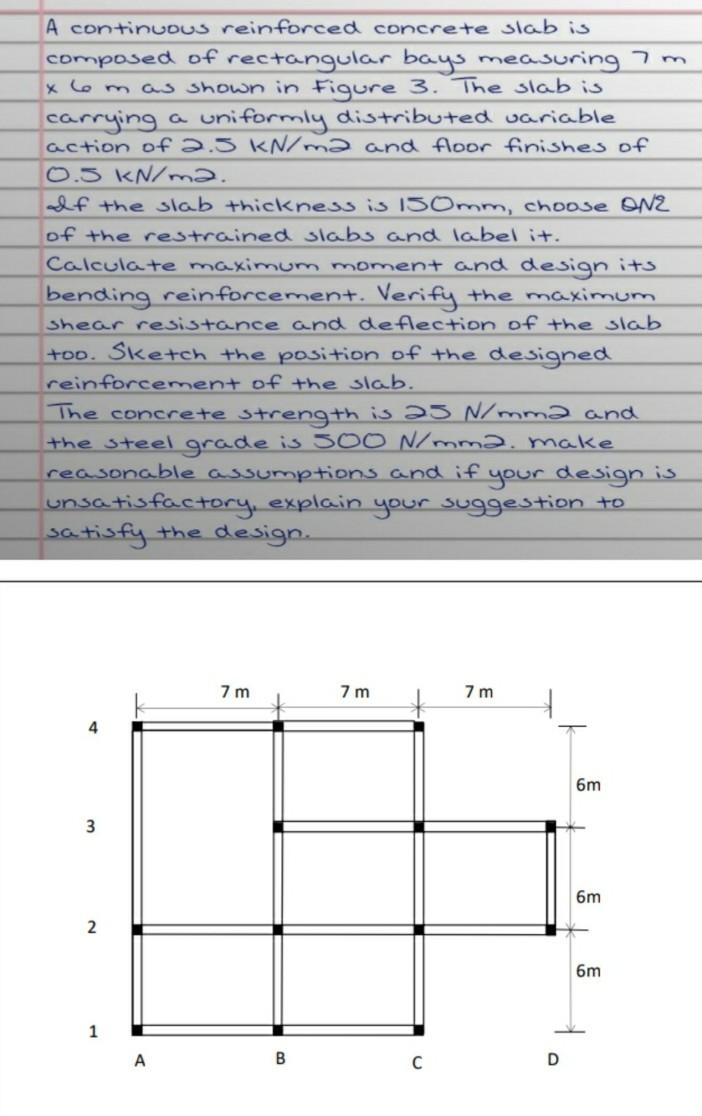 A continuous reinforced concrete slab is
composed of rectangular bays measuring 7 m
x 6 m as shown in Figure 3. The slab is
carrying a uniformly distributed variable
action of 2.5 kN/m2 and floor finishes of
0.5 kN/m2.
If the slab thickness is 150mm, choose ONE
of the restrained slabs and label it.
Calculate maximum moment and design its
bending reinforcement. Verify the maximum
shear resistance and deflection of the slab
too. Sketch the position of the designed
reinforcement of the slab.
The concrete strength is 25 N/mm2 and
the steel grade is 500 N/mm2. make
reasonable assumptions and if your design is
unsatisfactory, explain your suggestion to
satisfy the design.
7 m 7 m 7 m
4
6m
3
6m
2
6m
1
A B C D